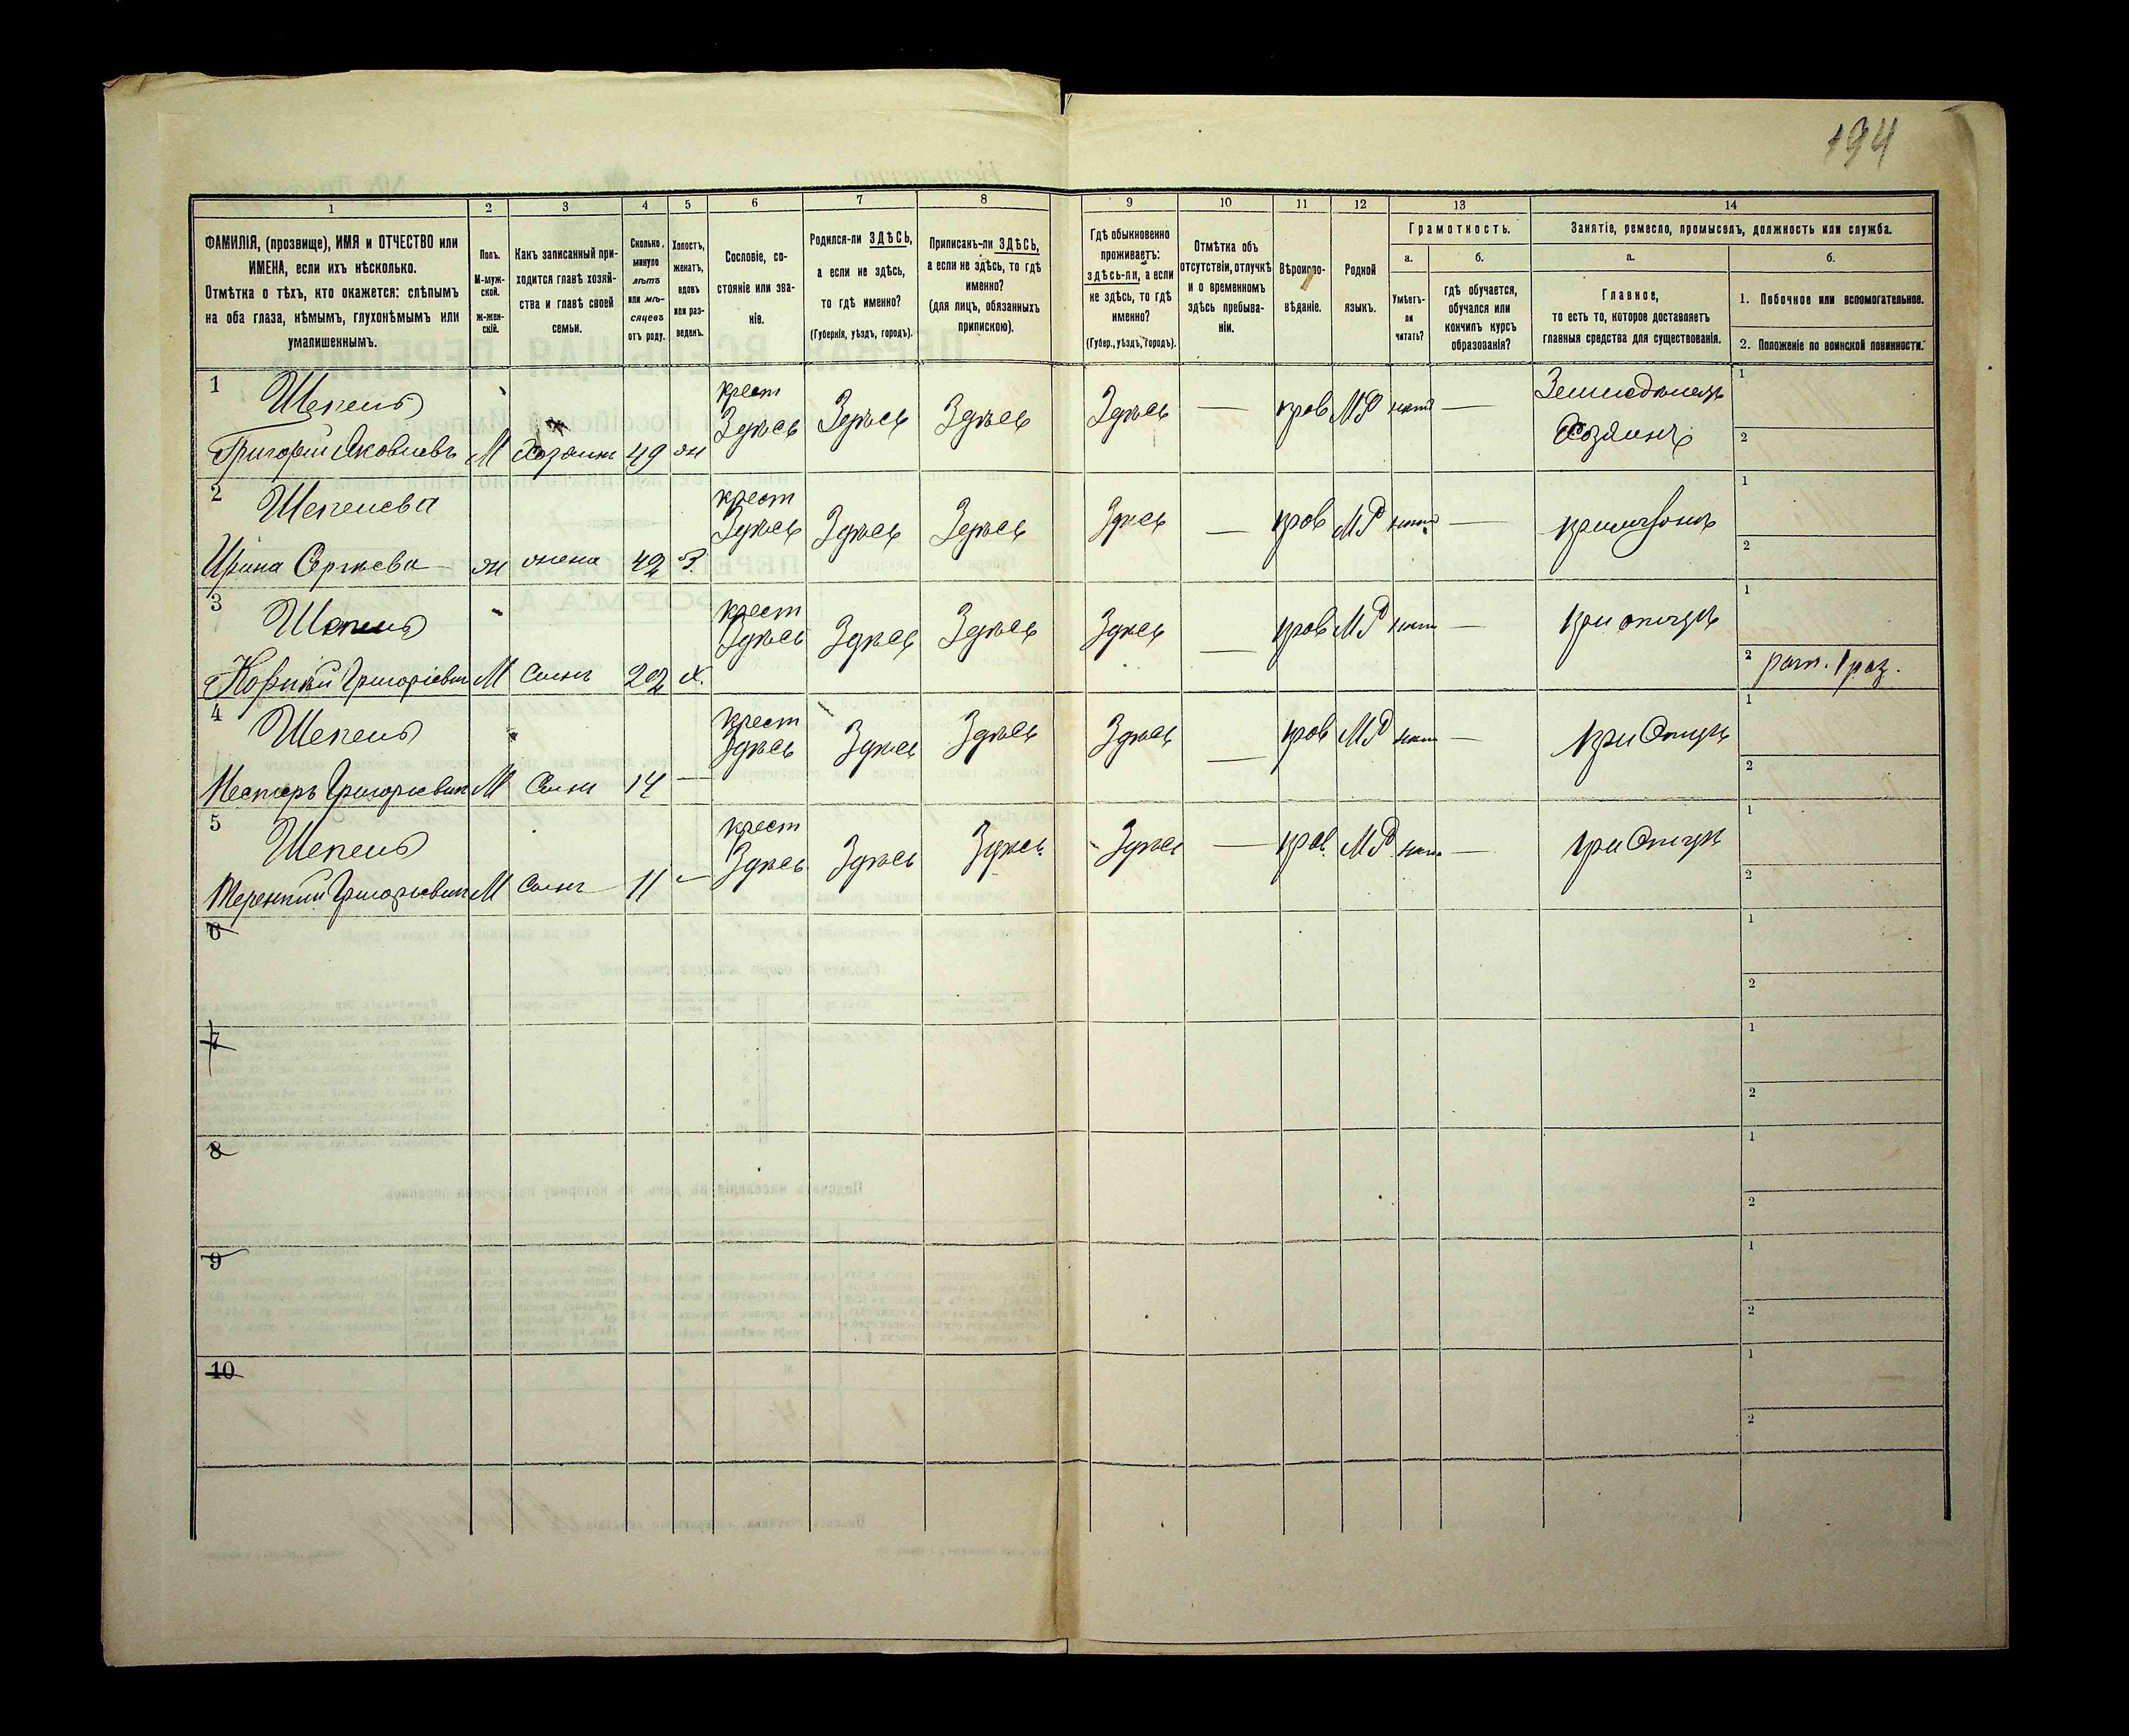 194
1 2 3 4 5 6 7 8 9 10 11 12 13 14
ФАМИЛІЯ, (прозвище), ИМЯ и ОТЧЕСТВО или
ИМЕНА, если ихъ нѣсколько.
Отмѣтка о тѣхъ, кто окажется: слѣпымъ
на оба глаза, нѣмымъ, глухонѣмымъ или
умалишеннымъ.
Полъ.
М-муж-
ской.
ж-жен-
скій.
Какъ записанный при-
ходится главѣ хозяй-
ства и главѣ своей
семьи.
Сколько
минуло
лѣтъ
или мѣ-
сяцевъ
отъ роду.
Холостъ,
женатъ,
вдовъ
или раз-
веденъ.
Сословіе, со-
стояніе или зва-
ніе.
Родился-ли ЗДѢСЬ,
а если не здѣсь,
то гдѣ именно?
(Губернія, уѣздъ, городъ).
Приписанъ-ли ЗДѢСЬ,
а если не здѣсь, то гдѣ
именно?
(для лицъ, обязанныхъ
припискою).
Гдѣ обыкновенно
проживаетъ:
здѣсь-ли, а если
не здѣсь, то гдѣ
именно?
(Губер., уѣздъ, городъ).
Отмѣтка объ
отсутствіи, отлучкѣ
и о временномъ
здѣсь пребыва-
ніи.
Вѣроиспо-
вѣданіе.
Родной
языкъ.
Грамотность.
а.
Умѣетъ-
ли
читать?
б.
гдѣ обучается,
обучался или
кончилъ курсъ
образованія?
Занятіе, ремесло, промыселъ, должность или служба.
а.
Главное,
то есть то, которое доставляетъ
главныя средства для существованія.
б.
1. Побочное или вспомогательное.
2. Положеніе по воинской повинности.
1 крест 1
Здѣсь Здѣсь Здѣсь Здѣсь — МР нѣтъ —
Григорій Яковлевъ М Хозяинъ 49 ж Хозяинъ 2
2 крест 1
Здѣсь Здѣсь Здѣсь Здѣсь — МР нѣтъ —
Ирина Сергѣева ж жена 42 З. 2
3 крест 1
Здѣсь Здѣсь Здѣсь Здѣсь — МР нѣтъ — при отцѣ
Григоріевъ М Сынъ 22 х. 2
4 крест 1
Здѣсь Здѣсь Здѣсь Здѣсь — МР нѣтъ — при Отцѣ
Нестеръ Григоріевъ М Сынъ 14 — 2
5 крест 1
Здѣсь Здѣсь Здѣсь Здѣсь — МР нѣтъ — при Отцѣ
Терентій Григоріевъ М Сынъ 11 — 2
6 1
2
7 1
2
8 1
2
9 1
2
10 1
2